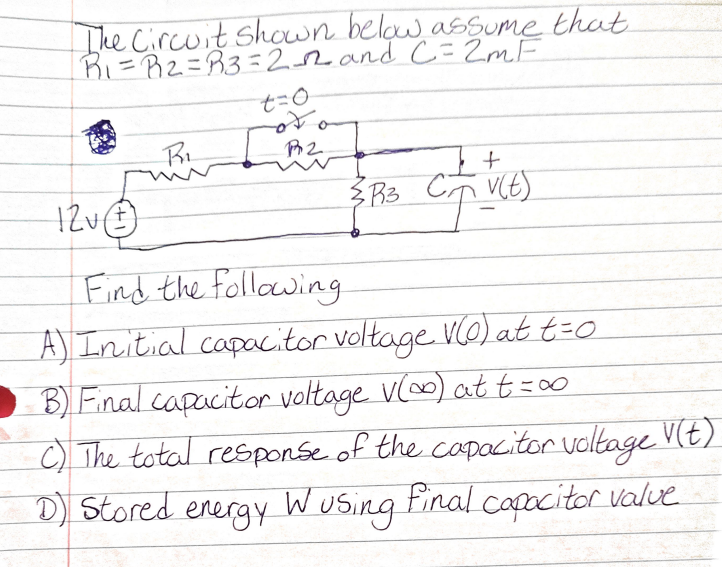 The Circuit shown below assume that
R1 = R2 = R3 = 2 Ω and C = 2mF
t=0
R1
R2
R3
C
+
V(t)
-
12v
+
-
Find the following
A) Initial capacitor voltage V(0) at t=0
B) Final capacitor voltage V(∞) at t=∞
C) The total response of the capacitor voltage V(t)
D) Stored energy W using final capacitor value